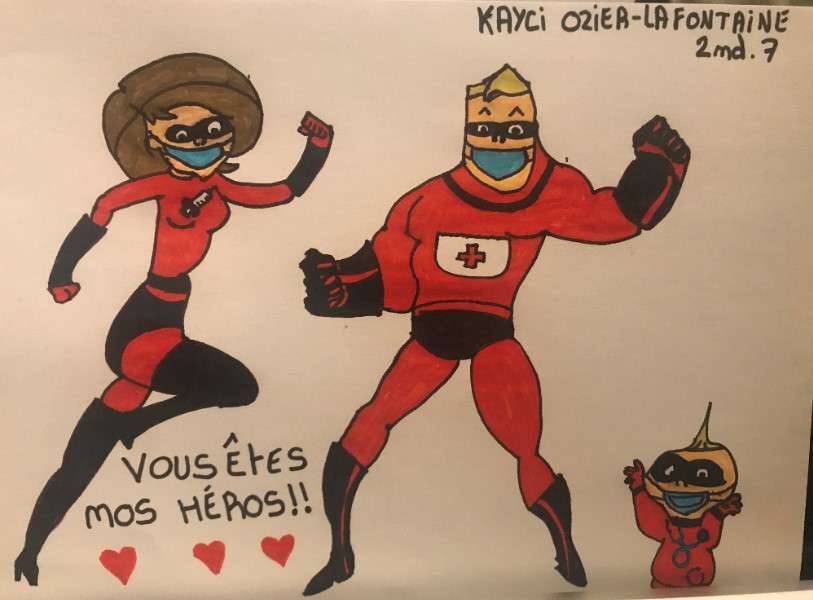 KAYCi OZiER-LAFONTAiNE
2md.7
VOUS ÊtES
mOS HÉROS!!